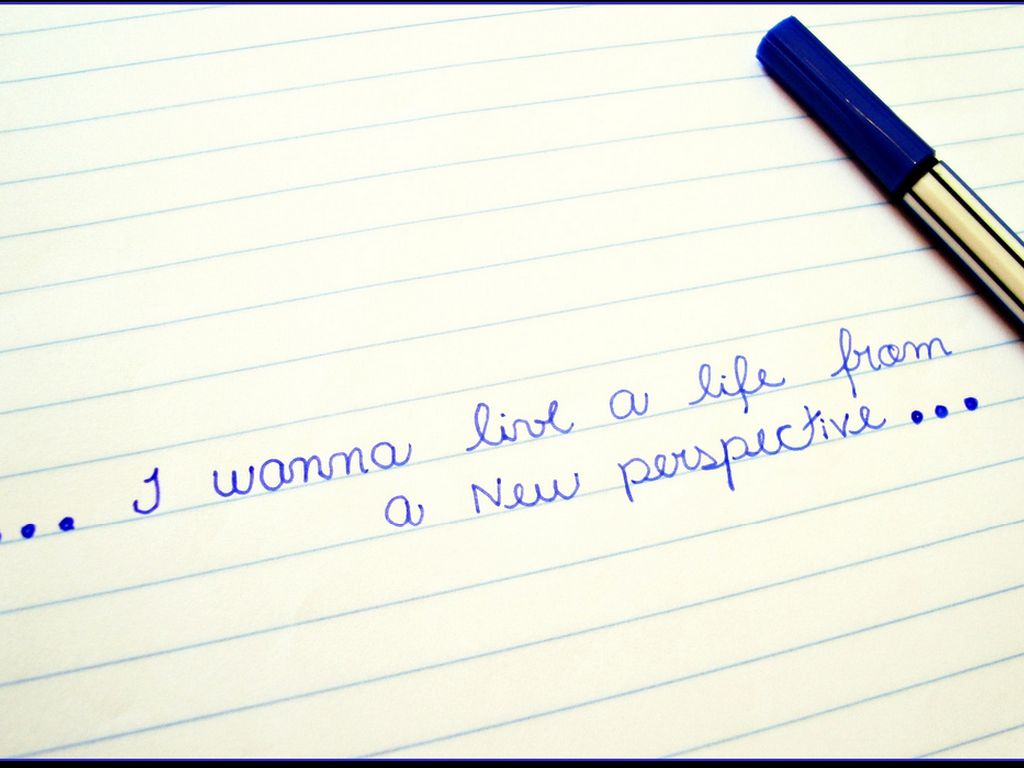 ... I wanna live a life from
a New perspective...